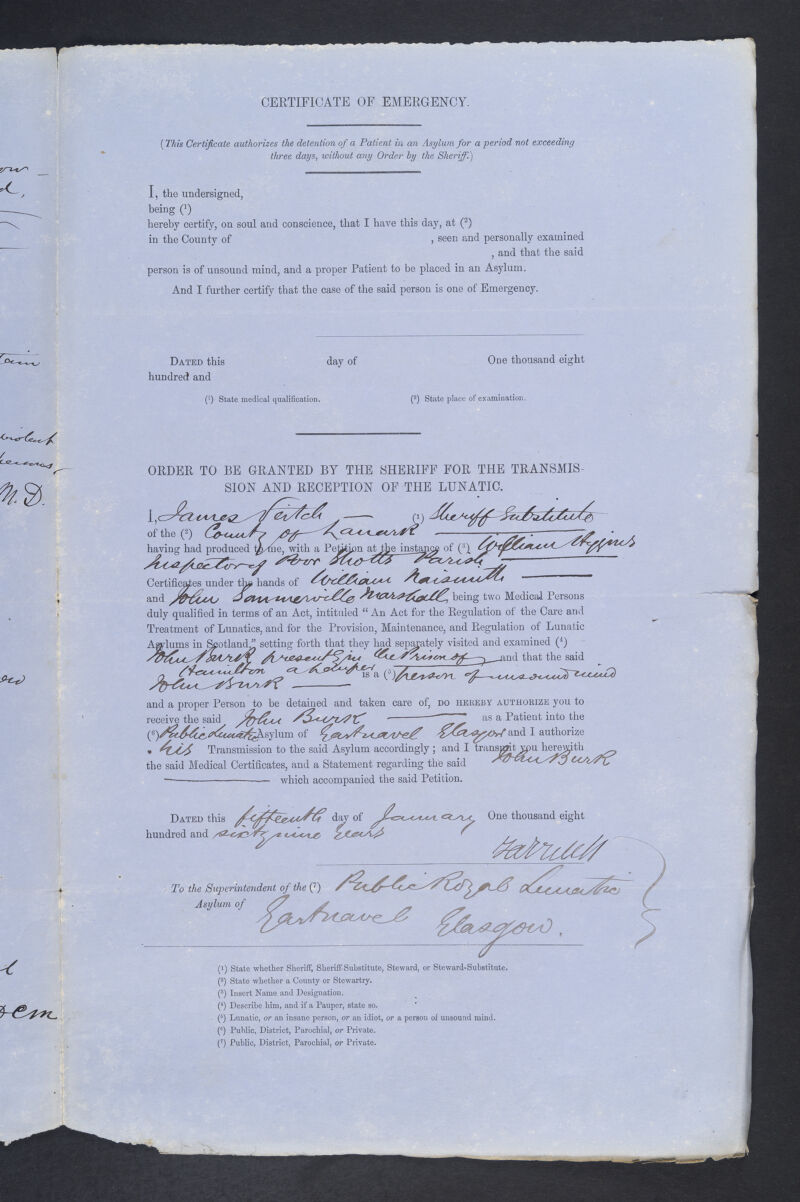 ow –
d,
CERTIFICATE OF EMERGENCY.
(This Certificate authorizes the detention of a Patient in an Asylum for a period not exceeding
three days, without any Order by the Sheriff.)
I, the undersigned,
being (1)
hereby certify, on soul and conscience, that I have this day, at (2)
in the County of , seen and personally examined
, and that the said
person is of unsound mind, and a proper Patient to be placed in an Asylum.
And I further certify that the case of the said person is one of Emergency.
DATED this day of One thousand eight
hundred and
(1) State medical qualification. (2) State place of examination.
violent
M.D.
ORDER TO BE GRANTED BY THE SHERIFF FOR THE TRANSMIS-
SION AND RECEPTION OF THE LUNATIC.
I, James Veitch — (1) Sheriff Substitute
of the (2) County of Lanark
having had produced to me, with a Petition at the instance of (3) William Higgins
Inspector of Poor Shotts Parish
Certificates under the hands of William Naismith
and John Sommerville Marshall, being two Medical Persons
duly qualified in terms of an Act, intituled “An Act for the Regulation of the Care and
Treatment of Lunatics, and for the Provision, Maintenance, and Regulation of Lunatic
Asylums in Scotland,” setting forth that they had separately visited and examined (4)
John Burk presently in the Prison of and that the said
Hamilton a Pauper
John Burk — is a (5) Person of unsound mind
and a proper Person to be detained and taken care of, DO HEREBY AUTHORIZE you to
receive the said John Burk — as a Patient into the
(6) Public Lunatic Asylum of Gartnavel Glasgow and I authorize
his Transmission to the said Asylum accordingly; and I transmit you herewith
the said Medical Certificates, and a Statement regarding the said John Burk
which accompanied the said Petition.
DATED this fifteenth day of January One thousand eight
hundred and sixty nine years
To the Superintendent of the (7) Public Royal Lunatic
Asylum of Gartnavel Glasgow.
(1) State whether Sheriff, Sheriff-Substitute, Steward, or Steward-Substitute.
(2) State whether a County or Stewartry.
(3) Insert Name and Designation.
(4) Describe him, and if a Pauper, state so.
(5) Lunatic, or an insane person, or an idiot, or a person of unsound mind.
(6) Public, District, Parochial, or Private.
(7) Public, District, Parochial, or Private.